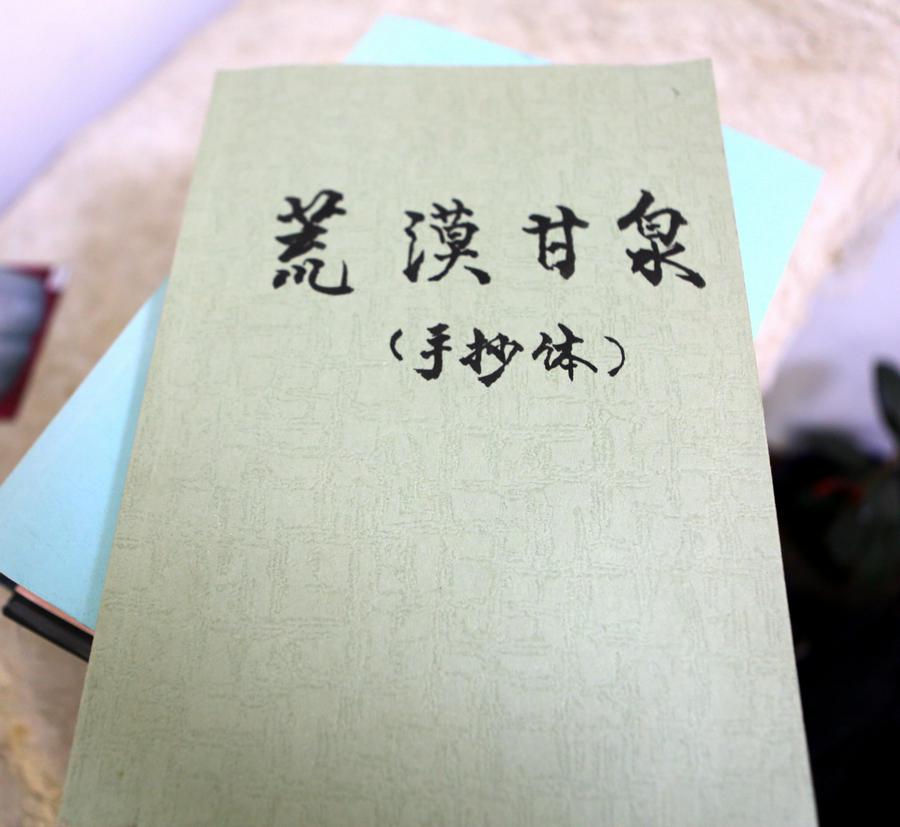 荒漠甘泉
（手抄体）